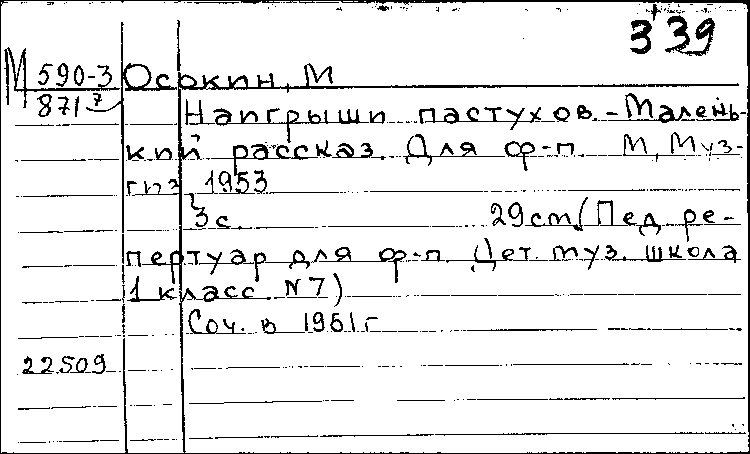 3 39
М 590-3 Осокин, М
871 7
Наигрыши пастухов. - Малень-
кий рассказ. Для ф-п. М, Муз-
гиз, 1953
3 с. 29 cm. (Пед. ре-
пертуар для ф-п. Дет. муз. школа
1 класс. N 7)
Соч. в 1951 г
22509